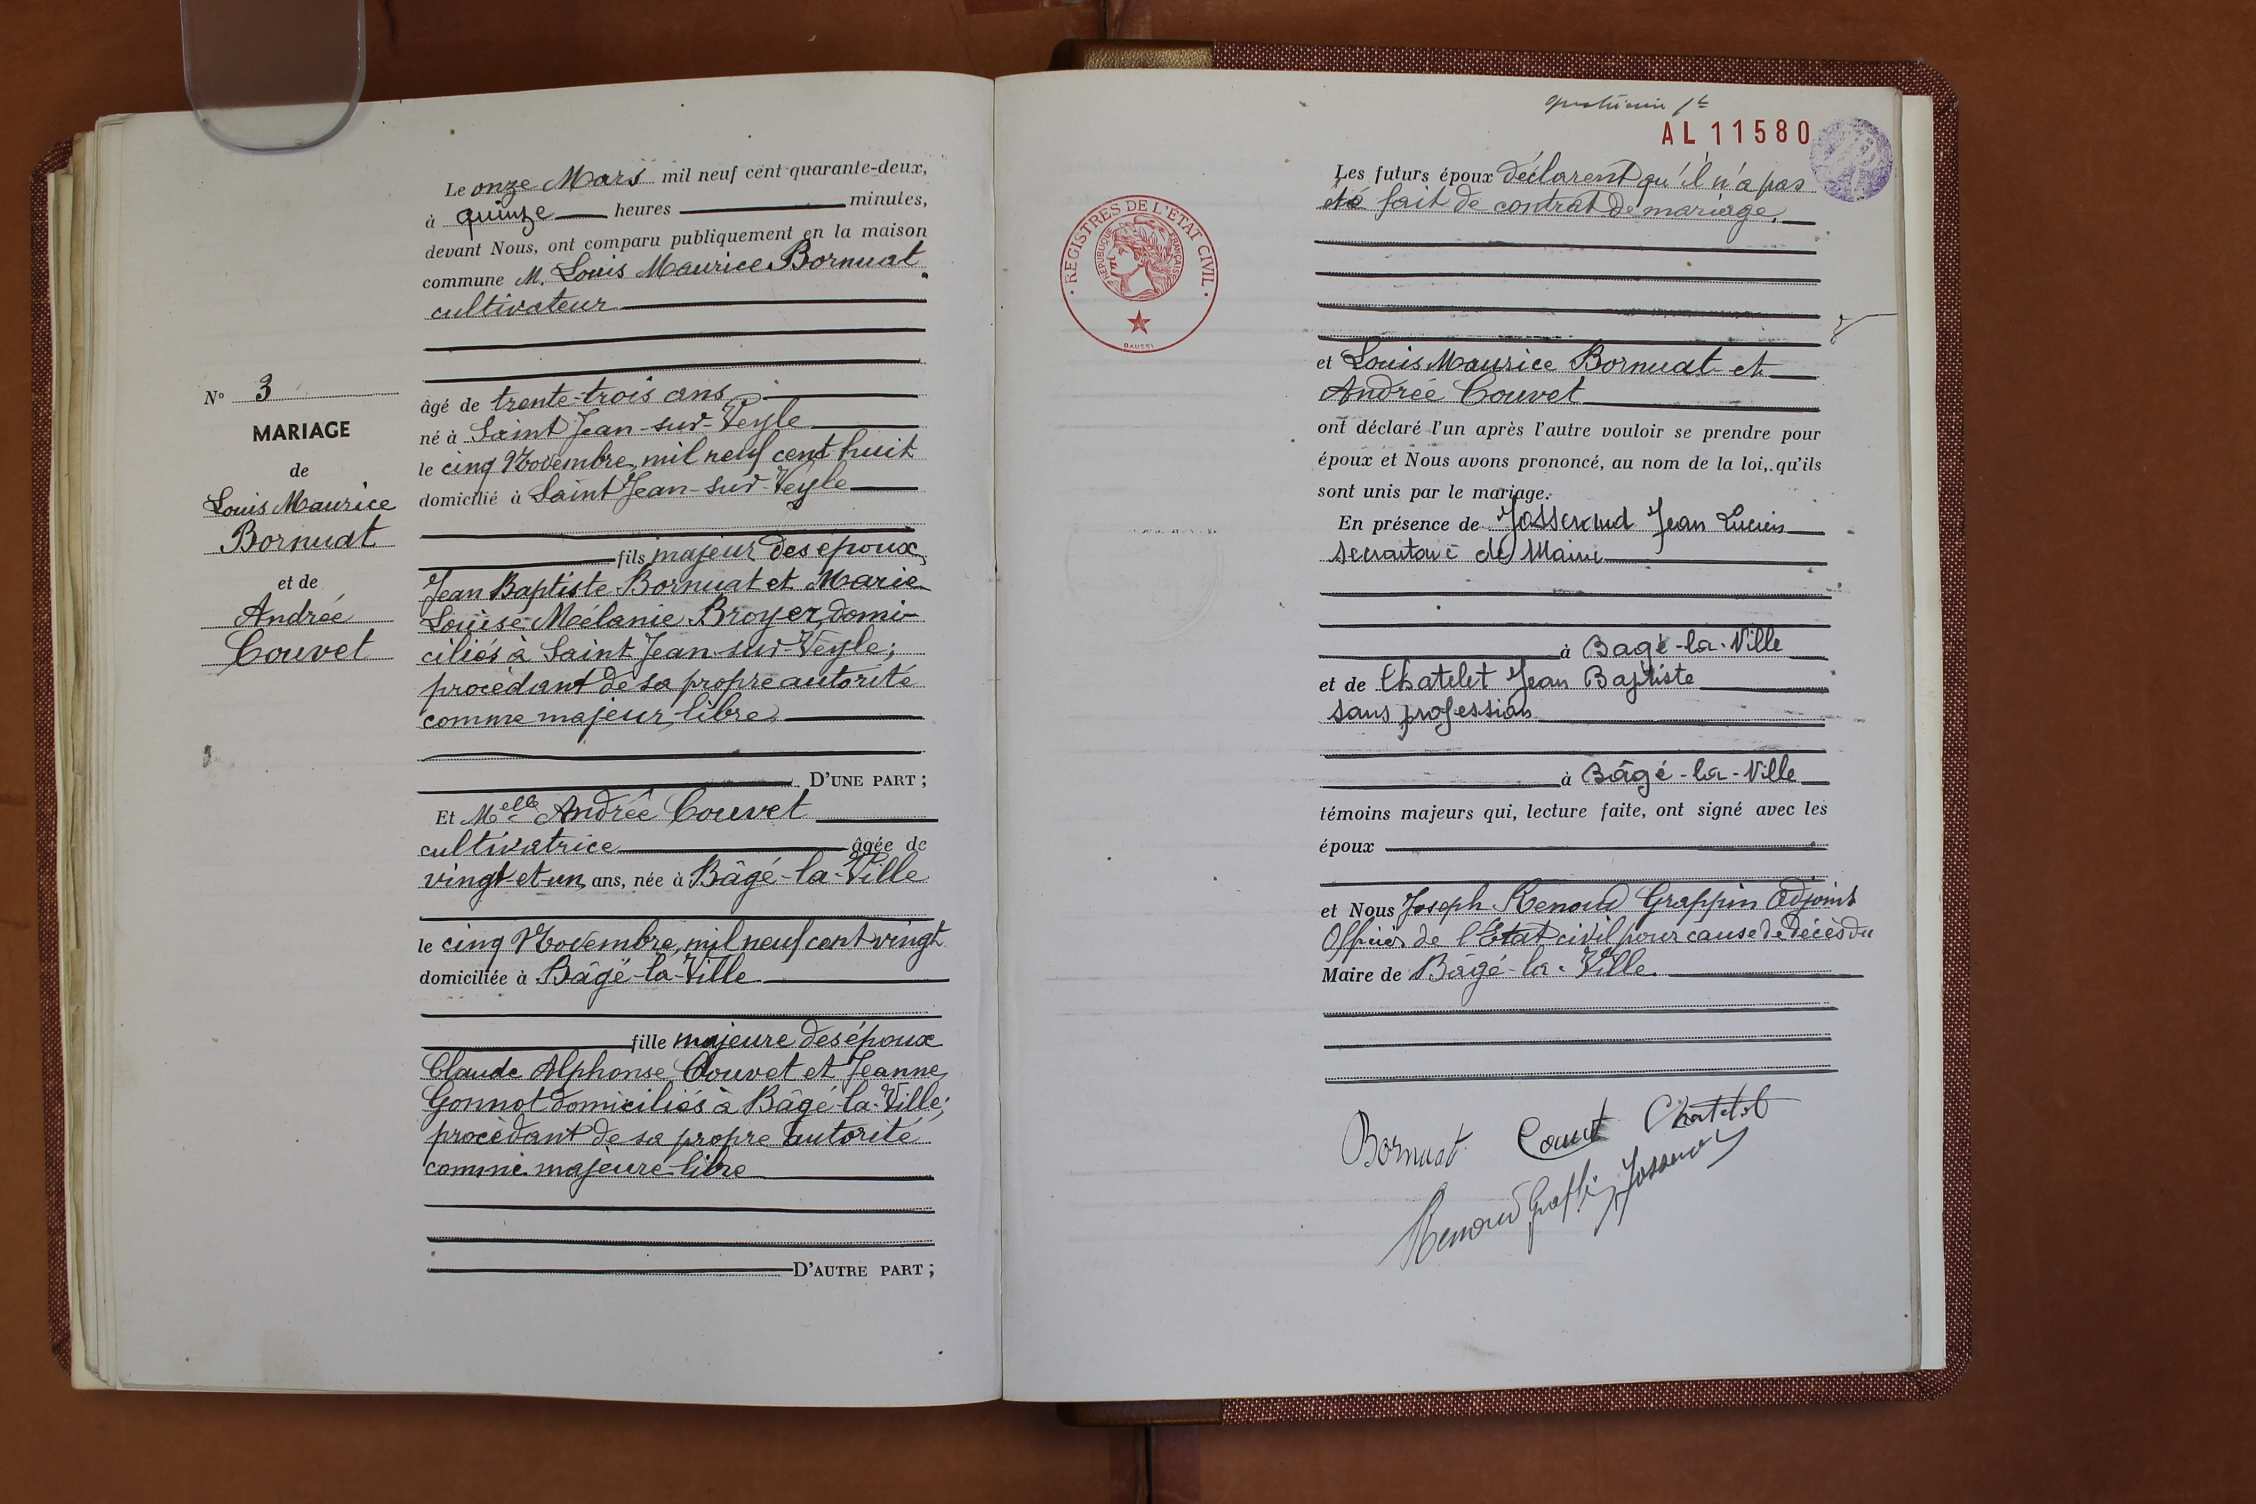 Le onze Mars mil neuf cent quarante-deux,
à quinze heures minutes,
devant Nous, ont comparu publiquement en la maison
commune M. Louis Maurice Bornuat
cultivateur
âgé de trente-trois ans
né à Saint Jean-sur-Veyle
le cinq Novembre mil neuf cent huit
domicilié à Saint Jean-sur-Veyle
fils majeur des époux
Jean Baptiste Bornuat et Marie
Louise Mélanie Broyer, domi-
ciliés à Saint Jean-sur-Veyle;
procèdant de sa propre autorité
comme majeur libre
D'UNE PART ;
Et Melle Andrée Couvet
cultivatrice âgée de
vingt-et-un ans, née à Bâgé-la-Ville
le cinq Novembre, mil neuf cent vingt
domiciliée à Bâgé-la-Ville
fille majeure des époux
Claude Alphonse Couvet et Jeanne
Gonnot domiciliés à Bâgé-la-Ville;
procèdant de sa propre autorité
comme majeure libre
D'AUTRE PART ;
N° 3
MARIAGE
de
Louis Maurice
Bornuat
et de
Andrée
Couvet
AL 11580
REGISTRES DE L'ETAT CIVIL
REPUBLIQUE FRANÇAISE
Les futurs époux déclarent qu'il n'a pas
été fait de contrat de mariage.
et Louis Maurice Bornuat et
Andrée Couvet
ont déclaré l'un après l'autre vouloir se prendre pour
époux et Nous avons prononcé, au nom de la loi, qu'ils
sont unis par le mariage.
En présence de Josserand Jean Lucien
secrétaire de Mairie
à Bagé-la-Ville
et de Chatelet Jean Baptiste
sans profession
à Bâgé-la-Ville
témoins majeurs qui, lecture faite, ont signé avec les
époux
et Nous Joseph Renoud Grappin Adjoint
Officier de l'Etat civil pour cause de décès du
Maire de Bâgé-la-Ville
Bornuat Couvet Chatelet
Renoud Grappin Josserand